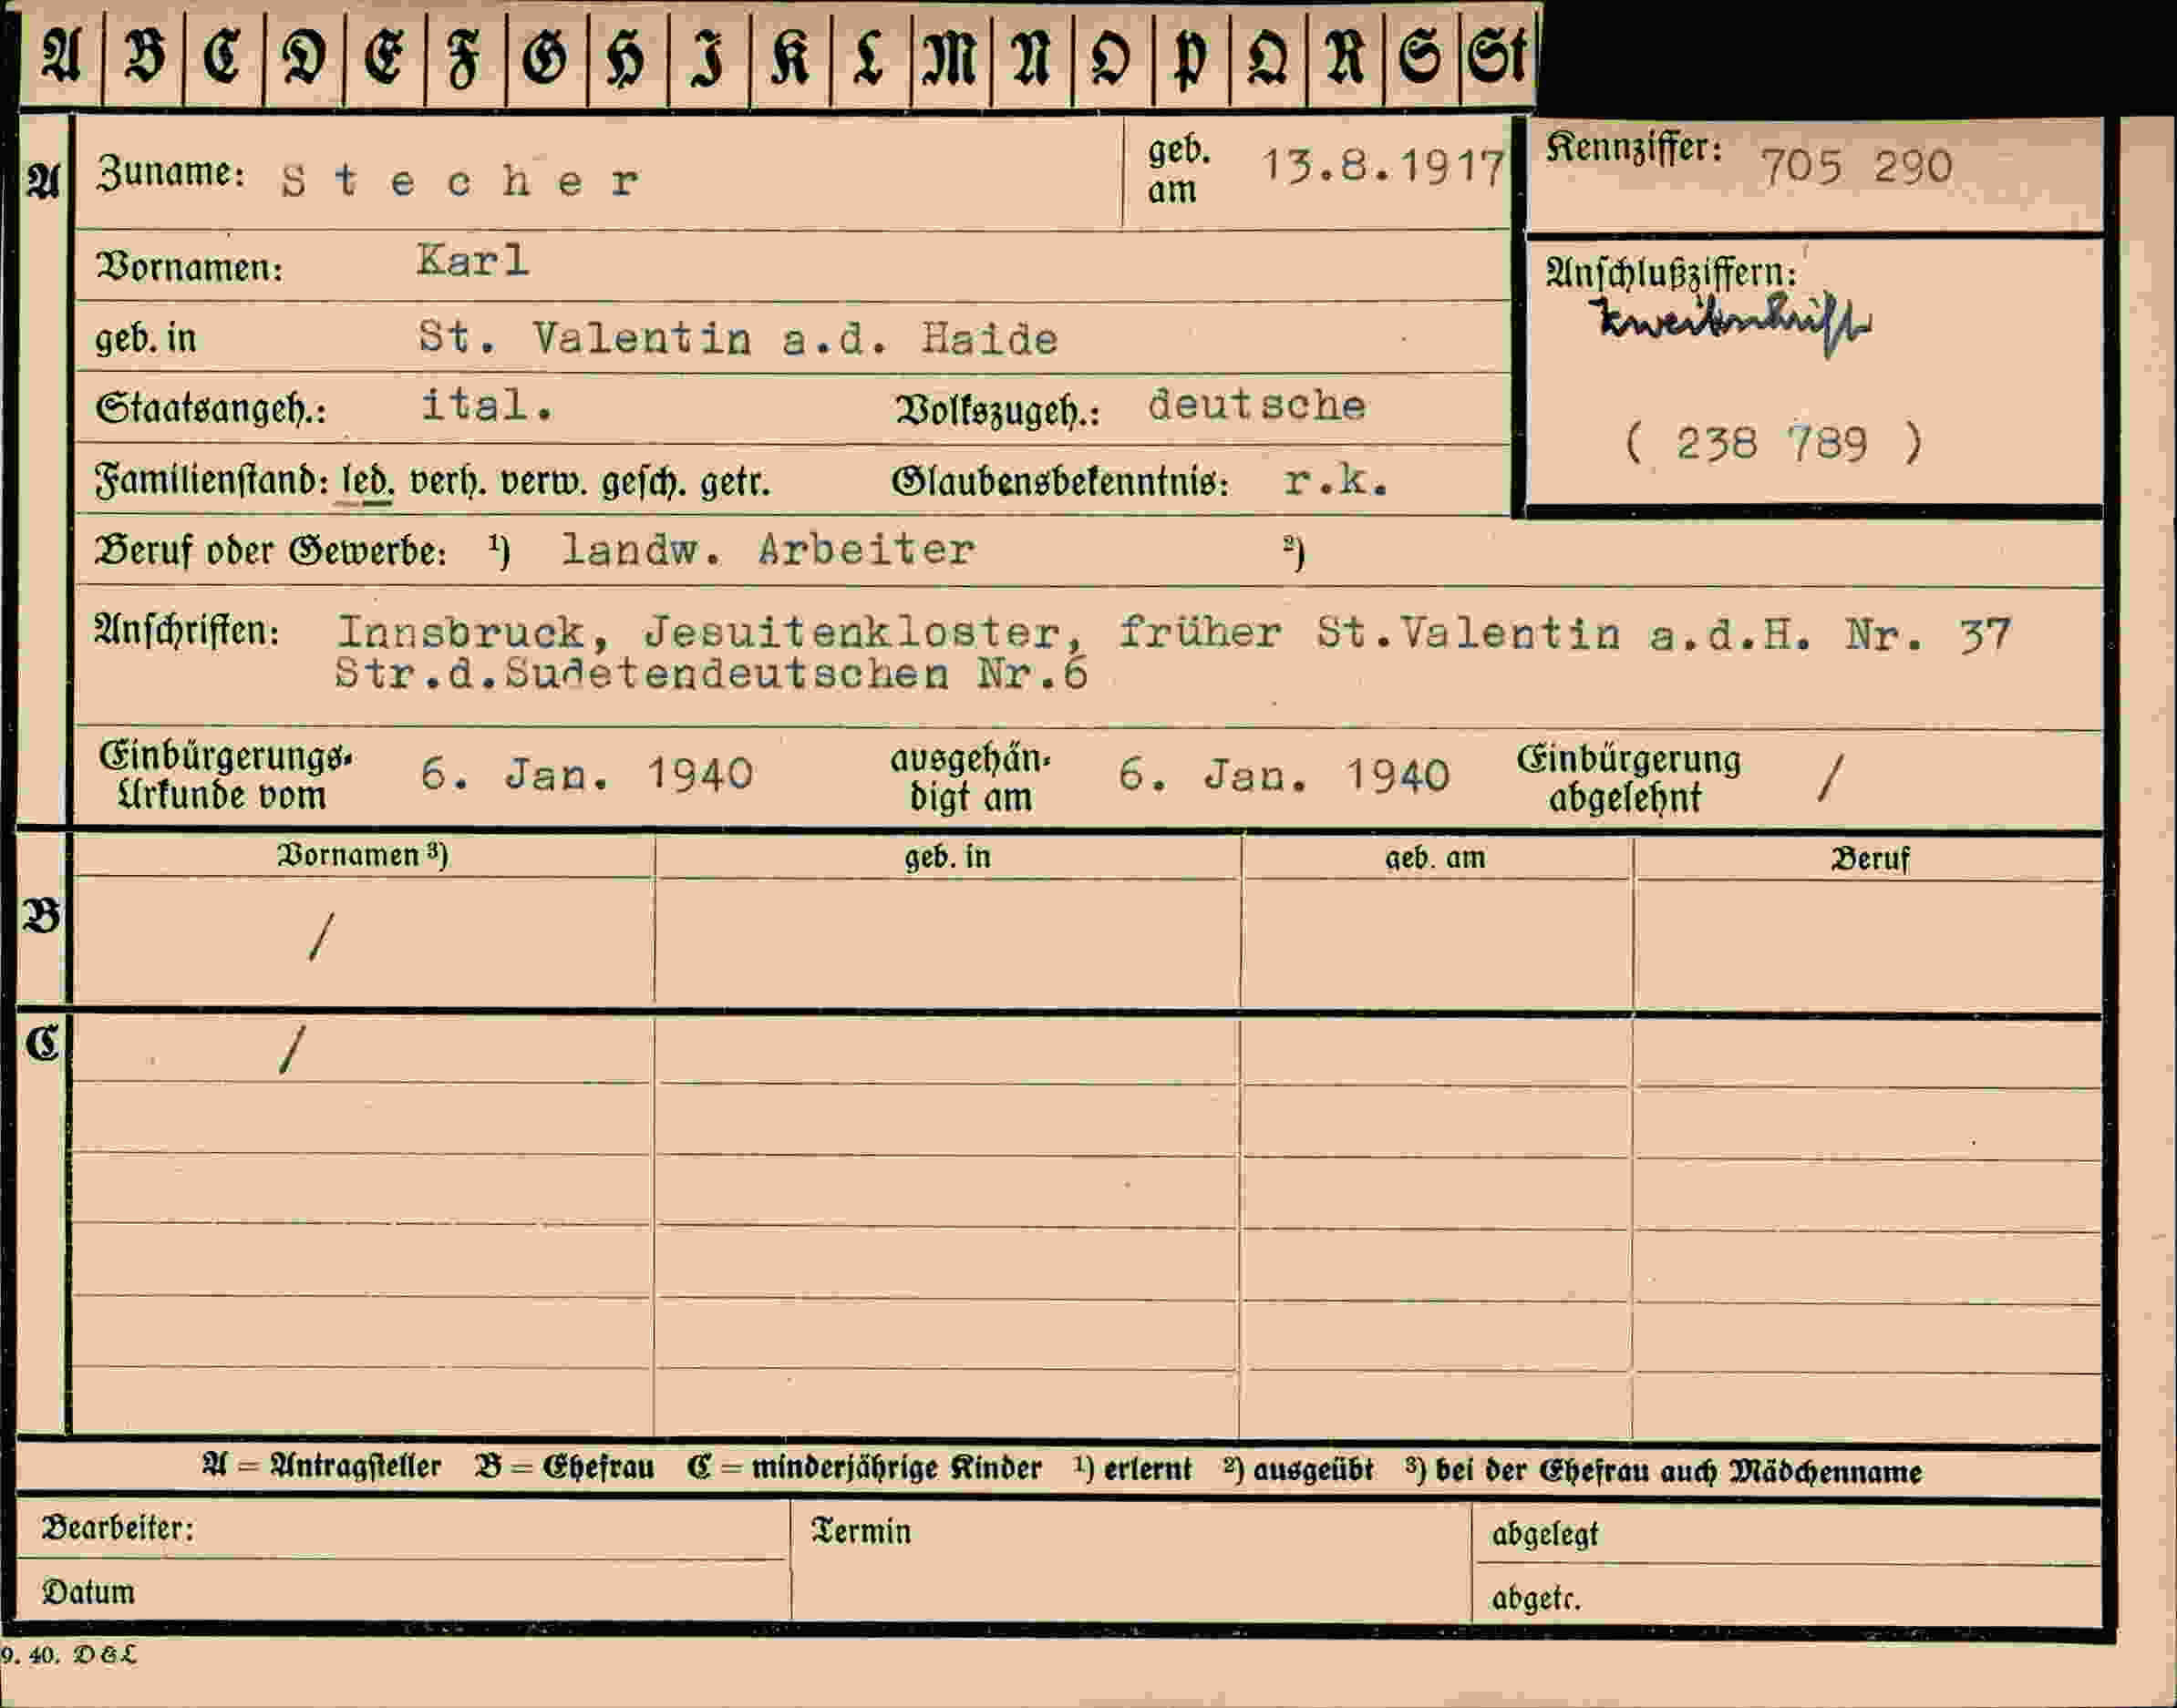 A B C D E F G H I K L M N O P Q R S St
A
Zuname: Stecher geb. am 13.8.1917
Kennziffer: 705 290
Vornamen: Karl
Anschlußziffern:
Zweitschrift
( 238 789 )
geb. in St. Valentin a.d. Haide
Staatsangeh.: ital. Volkszugeh.: deutsche
Familienstand: led. verh. verw. gesch. getr. Glaubensbekenntnis: r.k.
Beruf oder Gewerbe: ¹) landw. Arbeiter ²)
Anschriften: Innsbruck, Jesuitenkloster, früher St.Valentin a.d.H. Nr. 37
Str.d.Sudetendeutschen Nr.6
Einbürgerungs-Urkunde vom 6. Jan. 1940 ausgehändigt am 6. Jan. 1940 Einbürgerung abgelehnt /
Vornamen ³) geb. in geb. am Beruf
B /
C /
A = Antragsteller B = Ehefrau C = minderjährige Kinder ¹) erlernt ²) ausgeübt ³) bei der Ehefrau auch Mädchenname
Bearbeiter: Termin abgelegt
Datum abgetr.
9. 40. D & L